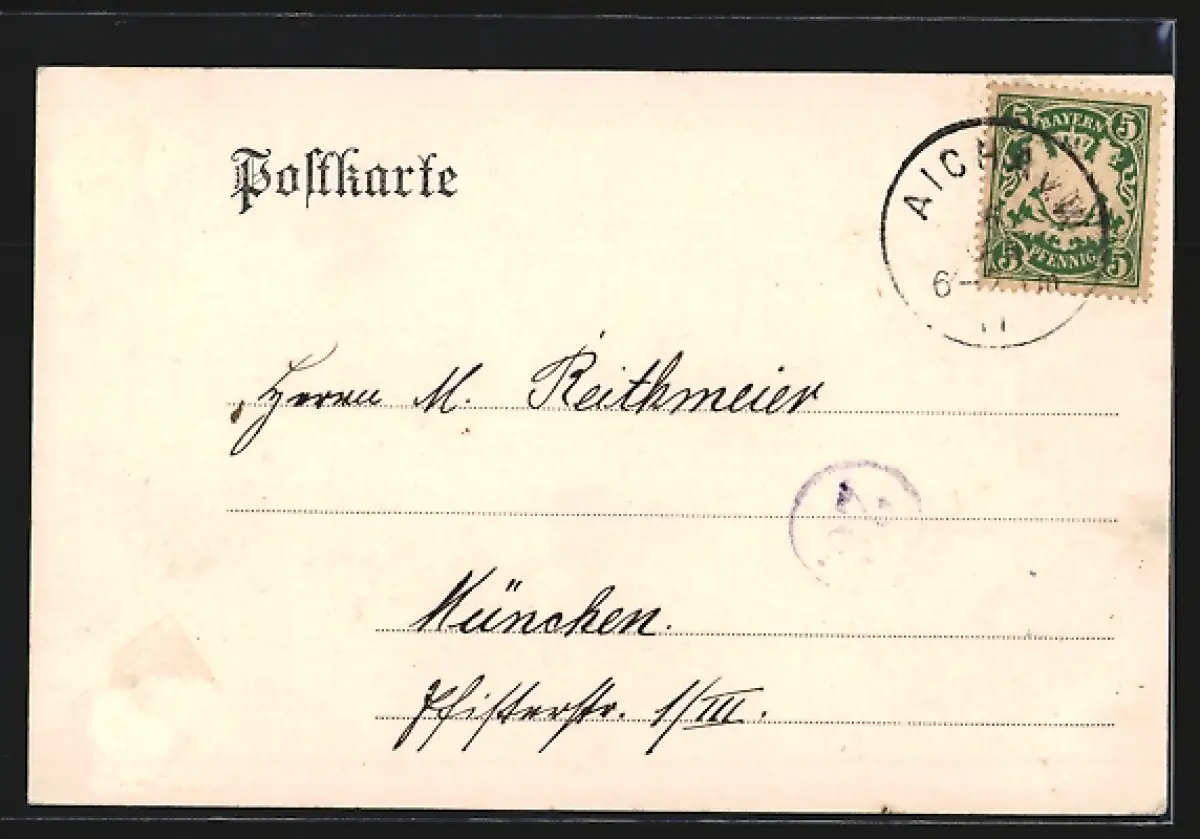 Postkarte
5 BAYERN 5
5 PFENNIG 5
AICH
6-
Herrn M. Reithmeier
München.
Pfisterstr. 1/III.